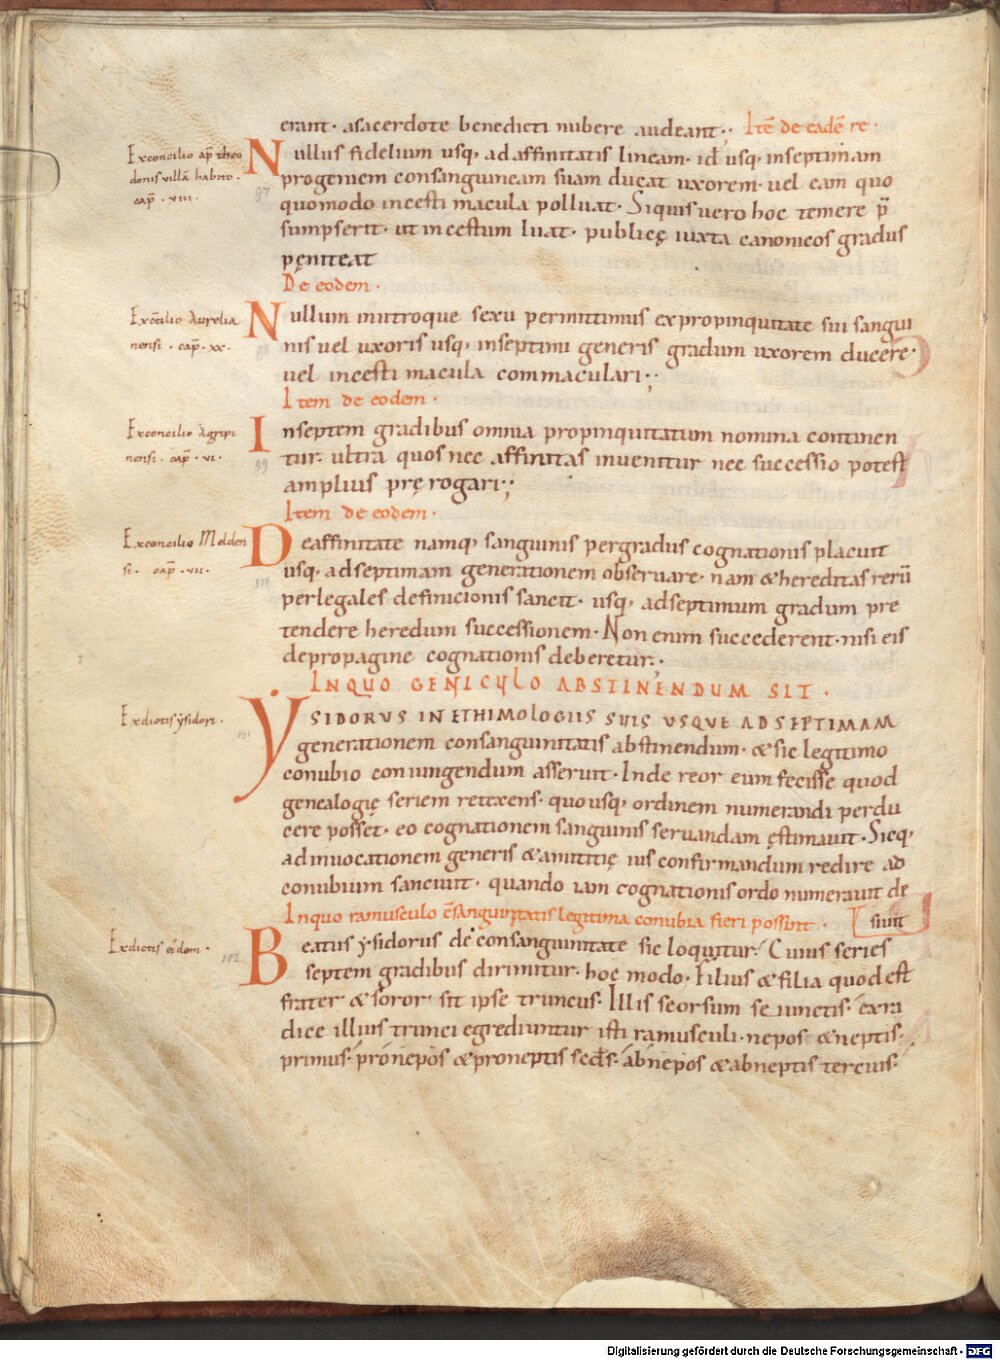 erant· asacerdote benedicti nubere audeant·· Ite͞ de eade͞ re·
Exconcilio ap̄ theo
donis villa͞ habito·
cap̄· viii·
Nullus fidelium usq; ad affinitatis lineam· id͞ usq; inseptimam
97
progeniem consanguineam suam ducat uxorem· uel eam quo
quomodo incesti macula polluat· Siquis uero hoc temere p̄
sumpserit· ut incestum luat· publicę iuxta canonicos gradus
pęniteat
De eodem·
Exco͞cilio Aurelia
nensi· cap̄· xx·
Nullum inutroque sexu permittimus expropinquitate sui sangui
98
nis uel uxoris usq; inseptimi generis gradum uxorem ducere·
uel incesti macula commaculari·;
Item de eodem·
Exconcilio Agripi
nensi· cap̄· vi·
Inseptem gradibus omnia propinquitatum nomina continen
99
tur· ultra quos nec affinitas inuenitur nec successio potest
amplius pręrogari·;
Item de eodem·
Exconcilio Melden
si· cap̄· vii·
Deaffinitate namq; sanguinis pergradus cognationis placuit
100
usq; adseptimam generationem obseruare· nam & hereditas reru͞
perlegales definicionis sancit· usq; adseptimum gradum pre
tendere heredum successionem· Non enim succederent· nisi eis
depropagine cognationis deberetur·
INQUO GENICULO ABSTINENDUM SIT·
Exdictis ẏsidori·
101
ẎSIDORUS INETHIMOLOGIIS SUIS USQUE ADSEPTIMAM
generationem consanguinitatis abstinendum· & sic legitimo
conubio coniungendum asserunt· Inde reor eum fecisse quod
genealogię seriem retexens· quousq; ordinem numerandi perdu
cere posset· eo cognationem sanguinis seruandam ęstimauit· Sicq;
adinuocationem generis & amititię ius confirmandum redire ad
conubium sanciuit· quando iam cognationis ordo numerauit de
siuit
Inquo ramusculo c͞sanguinitatis legitima conubia fieri possint·
Exdictis eidem·
102
Beatus ẏsidorus de consanguinitate sic loquitur· Cuius series
septem gradibus dirimitur· hoc modo· Filius & filia quod est
frater & soror· sit ipse truncus· Illis seorsum seiunctis· exra
dice illius trunci egrediuntur isti ramusculi· nepos & neptis·
primus· pronepos & proneptis sec͞ds· abnepos & abneptis tercius·
Digitalisierung gefördert durch die Deutsche Forschungsgemeinschaft · DFG